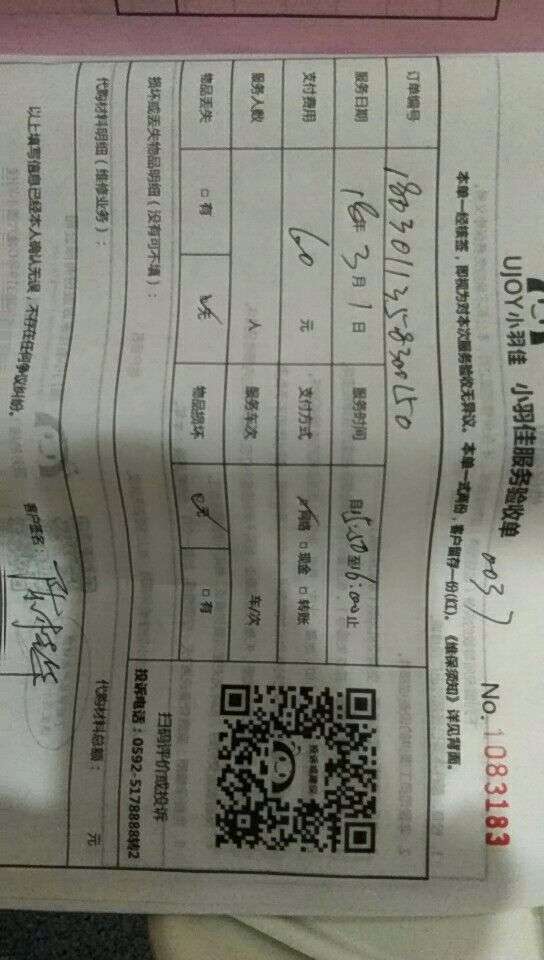 UJOY小羽佳 小羽佳服务验收单
0037 No. 1083183
本单一经核签，即视为对本次服务验收无异议。本单一式两份，客户留存一份(红)。《维保须知》详见背面。
订单编号 180301135830150
服务日期 18年 3月 1日 服务时间 自5:50至6:00止
支付费用 60 元 支付方式 ☑网络 □现金 □转账
服务人数 人 服务车次 车/次
物品丢失 □有 ☑无 物品损坏 ☑无 □有
损坏或丢失物品明细（没有可不填）：
代购材料明细（维修业务）： 代购材料总额： 元
以上填写信息已经本人确认无误，不存在任何争议纠纷。
客户签名：
投诉或建议
扫码评价或投诉
投诉电话：0592-5178888转2